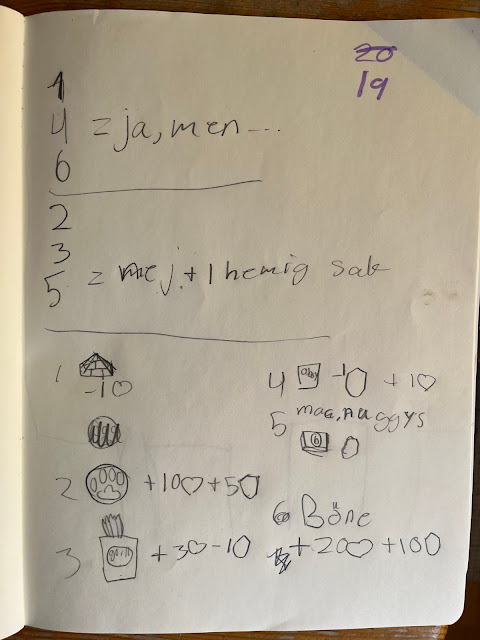 20
19
1
4 = ja, men ...
6
2
3
5 = nej. + 1 hemig sak
1
-1♡
2 +10♡ +5
3 +3♡ -10
4 -1 +1♡
5 mac, nuggys
6
6 Böne
+20♡ +100